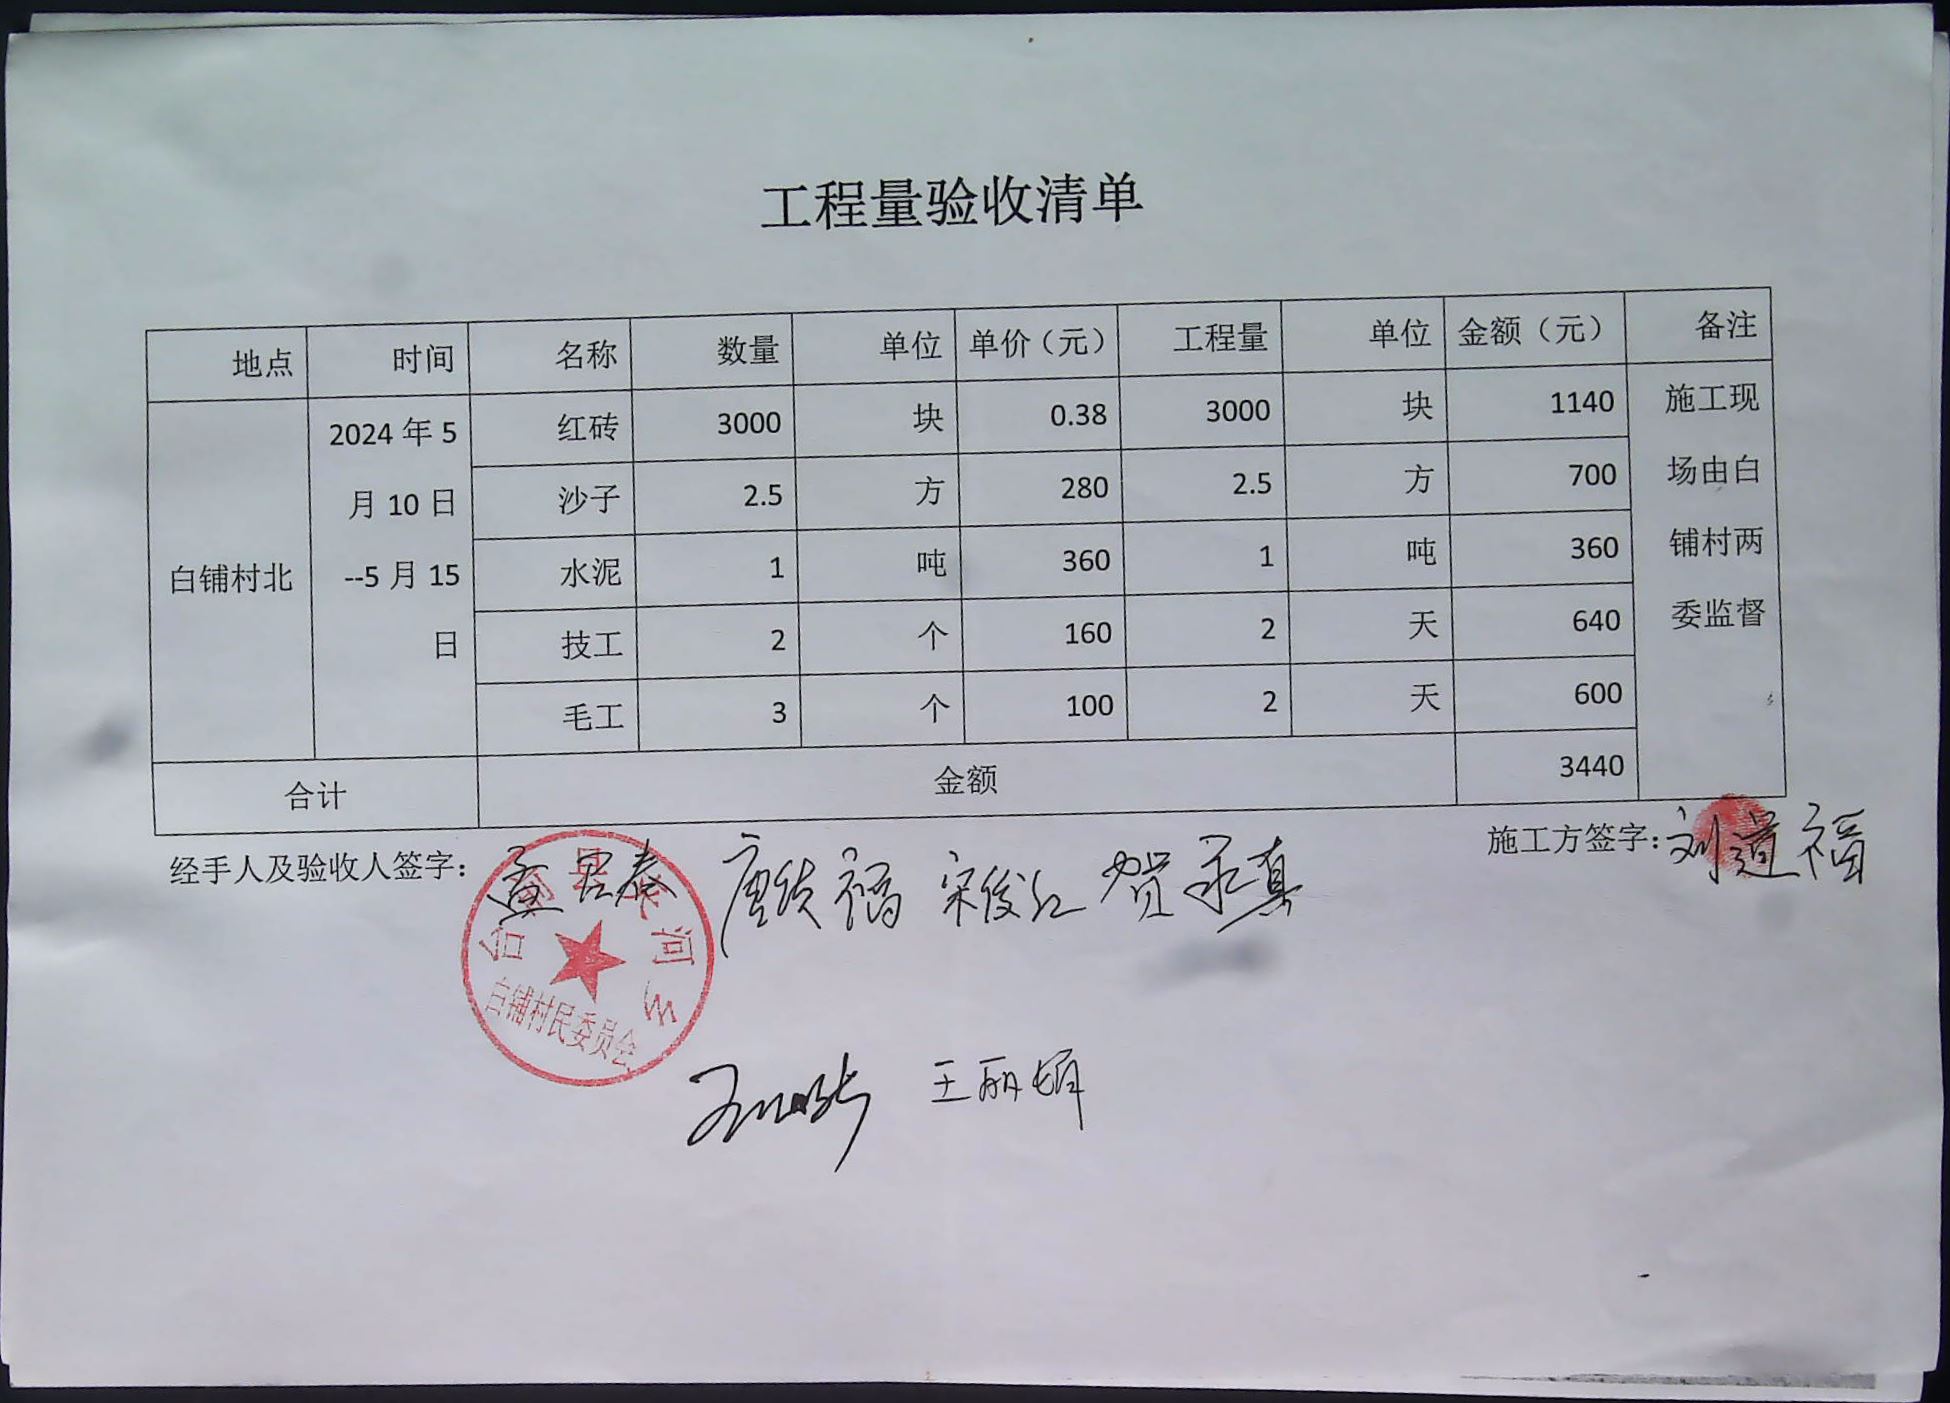 工程量验收清单
地点 时间 名称 数量 单位 单价（元） 工程量 单位 金额（元） 备注
白铺村北 2024年5月10日--5月15日 红砖 3000 块 0.38 3000 块 1140 施工现场由白铺村两委监督
沙子 2.5 方 280 2.5 方 700
水泥 1 吨 360 1 吨 360
技工 2 个 160 2 天 640
毛工 3 个 100 2 天 600
合计 金额 3440
经手人及验收人签字：
宋俊红 贺录真
施工方签字：刘道福
白铺村民委员会
王丽娟